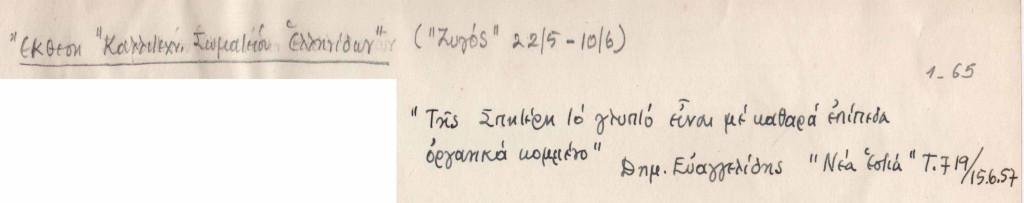 Ἔκθεση "Καλλιτεχν. Σωματείου Ἑλληνίδων" ("Ζυγός" 22/5 - 10/6)
1-65
"Τῆς Σπητέρη τό γλυπτό εἶναι μέ καθαρά ἐπίπεδα
ὀργανικά κομμένο" Δημ. Εὐαγγελίδης "Νέα Ἑστία" Τ.719/15.6.57